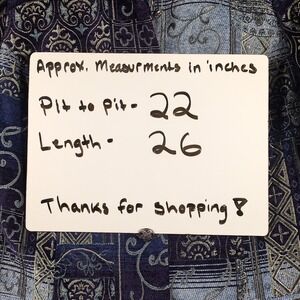 Approx. Measurments in inches
Pit to Pit - 22
Length - 26
Thanks for shopping!